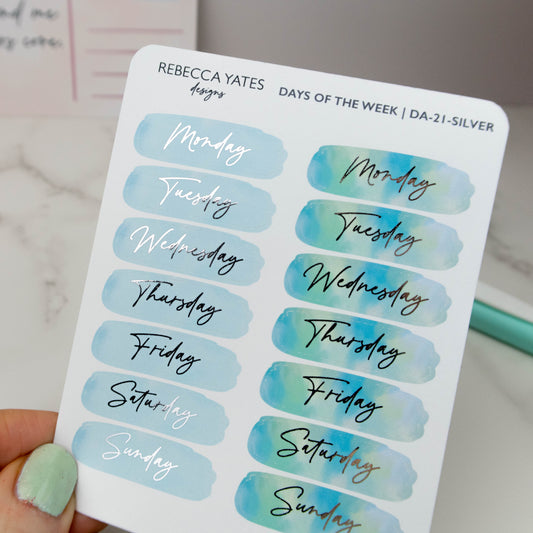 REBECCA YATES
designs
DAYS OF THE WEEK | DA-21-SILVER
Monday
Tuesday
Wednesday
Thursday
Friday
Saturday
Sunday
Monday
Tuesday
Wednesday
Thursday
Friday
Saturday
Sunday